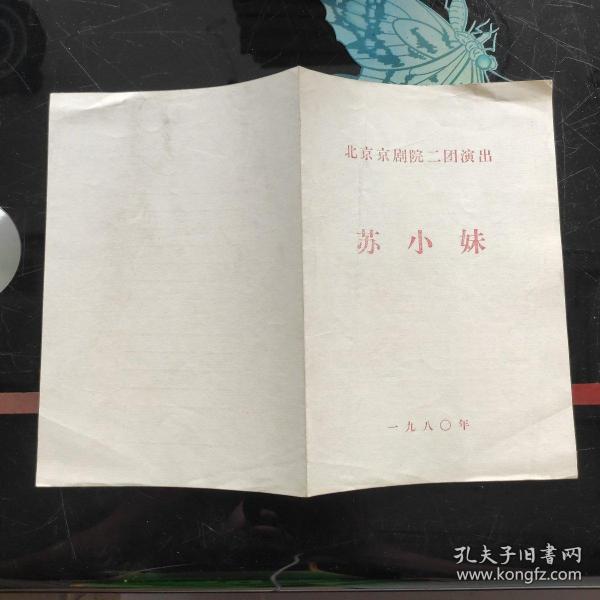 北京京剧院二团演出
苏小妹
一九八〇年
孔夫子旧書网
www.kongfz.com